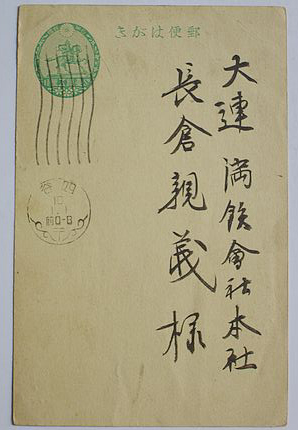 郵便はがき
大連満鉄會社本社
長倉親義様
前0-8